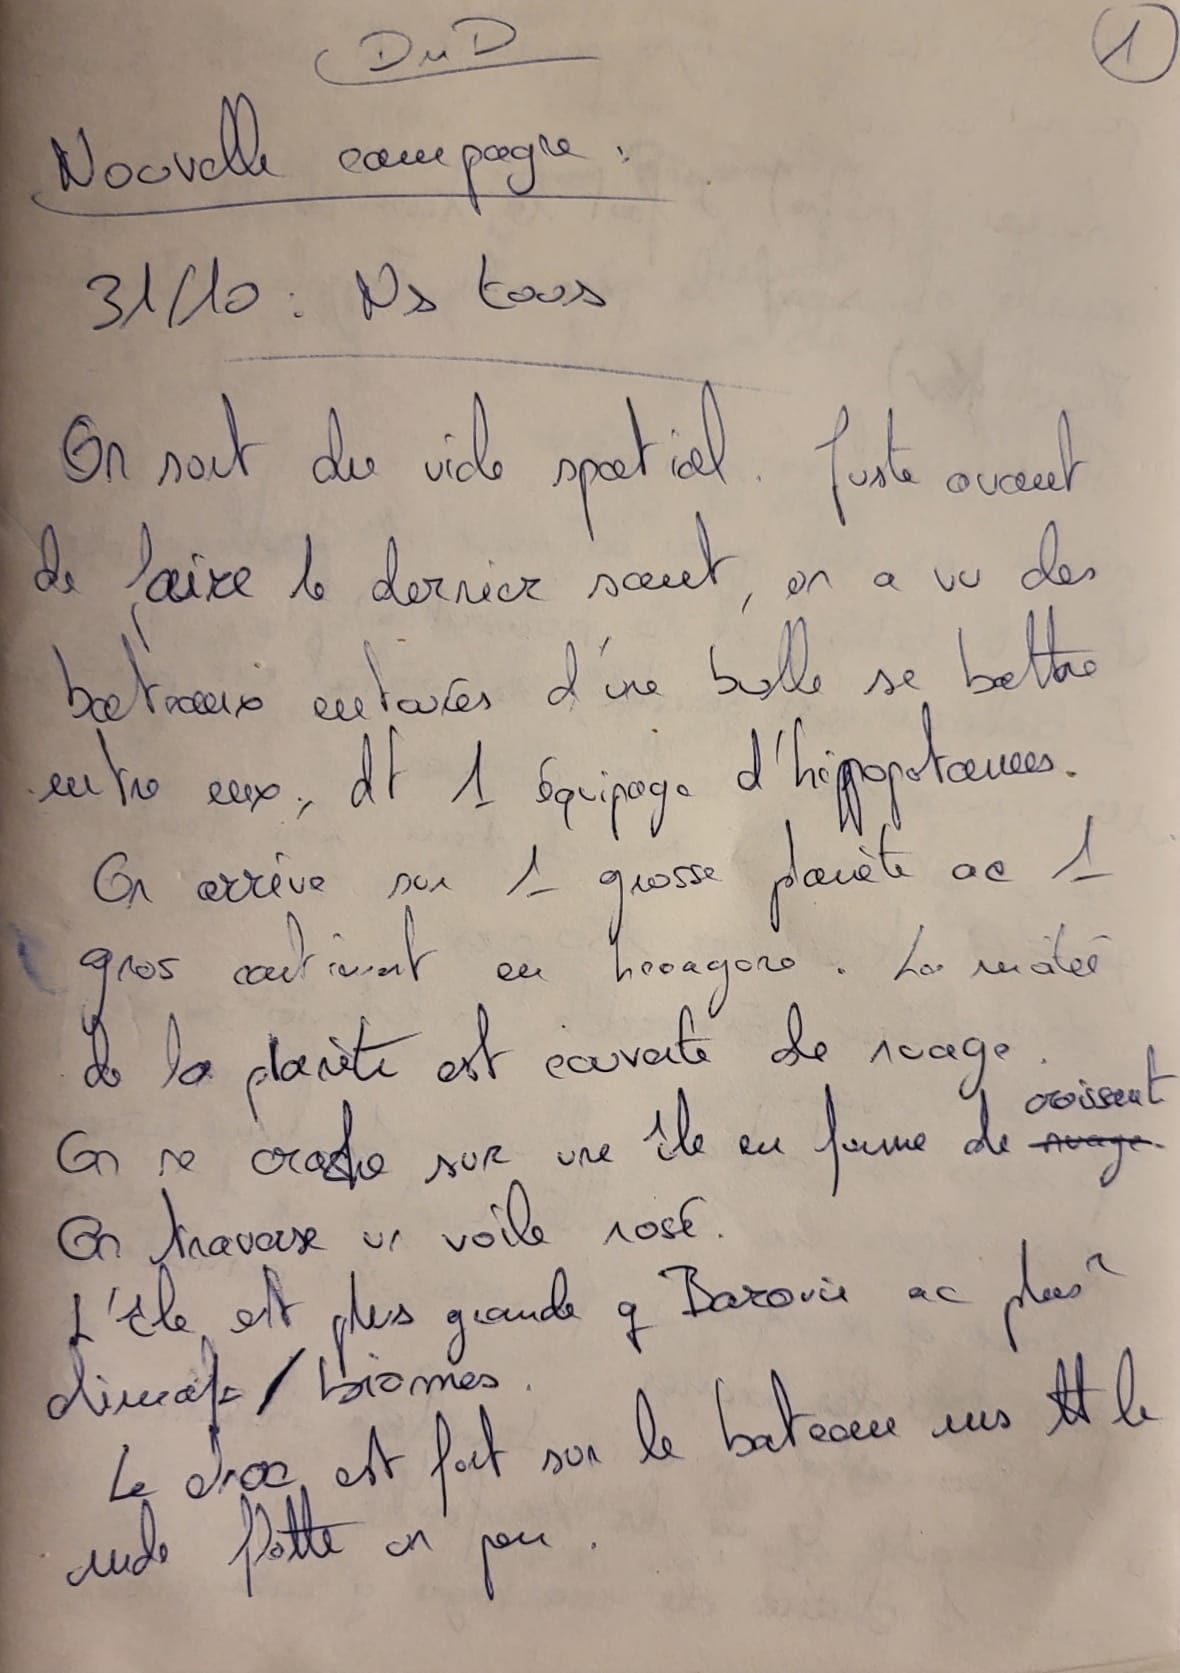 DnD
1
Nouvelle campagne :
31/10 : Ns tous
On sort du vide spatial. Juste avant
de faire le dernier saut, on a vu des
bateaux entourés d'une bulle se battre
entre eux, dt 1 équipage d'hippopotames.
On arrive sur 1 grosse planète ac 1
gros continent en hexagone. La moitié
de la planète est couverte de nuage.
croissant
On se crashe sur une île en forme de nuage.
On traverse un voile rosé.
L'île est plus grande q Barovie ac plusr
climats / biomes.
Le choc est fort sur le bateau ms tt le
mde flotte un peu.